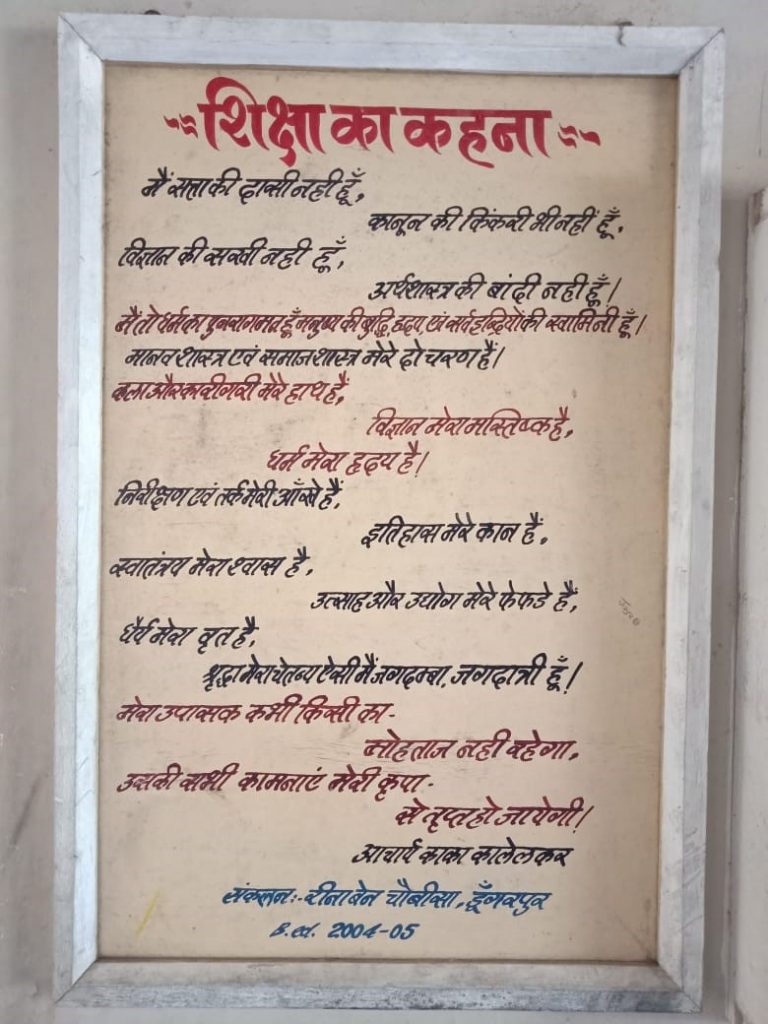 शिक्षा का कहना
मैं सत्ता की दासी नही हूँ,
कानून की किंकरी भी नहीं हूँ,
विज्ञान की सखी नही हूँ,
अर्थशास्त्र की बांदी नही हूँ!
मैं तो धर्म का पुनरागमन हूँ मनुष्य की बुद्धि, हृदय एवं सर्व इन्द्रियों की स्वामिनी हूँ।
मानव शास्त्र एवं समाज शास्त्र मेरे दो चरण हैं।
कला और कारीगरी मेरे हाथ हैं,
विज्ञान मेरा मस्तिष्क है,
धर्म मेरा हृदय है!
निरीक्षण एवं तर्क मेरी आँखे हैं,
इतिहास मेरे कान हैं,
स्वातंत्रय मेरा श्वास है,
उत्साह और उद्योग मेरे फेफडे हैं,
धैर्य मेरा वृत है,
श्रृद्धा मेरा चेतन्य ऐसी मैं जगदम्बा, जगदात्री हूँ!
मेरा उपासक कभी किसी का-
मोहताज नही रहेगा,
उसकी सभी कामनाएं मेरी कृपा-
से तृप्त हो जायेगी!
आचार्य काका कालेलकर
संकलन:- रीना बेन चौबीसा, डूँगरपुर
B.ed. 2004-05